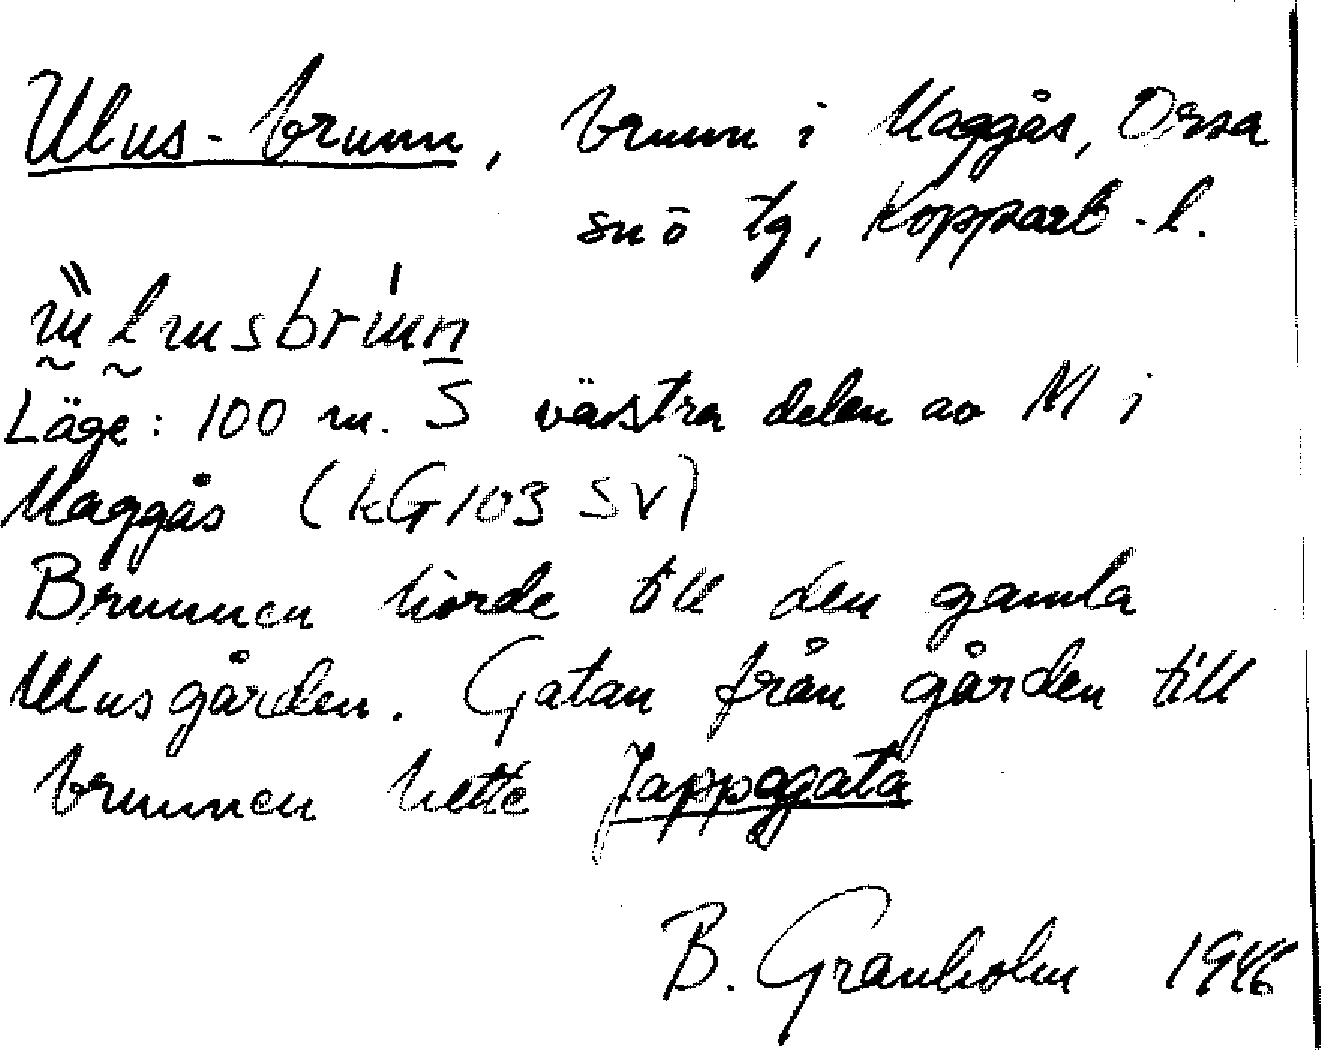 Ulus-brunn, brunn i Maggås, Orsa
snö tg, Kopparb-l.
Läge: 100 m. S västra delen av M i
Maggås (kG103 SV)
Brunnen hörde till den gamla
Ulusgården. Gatan från gården till
brunnen hette Jappogata
B. Granholm 1946